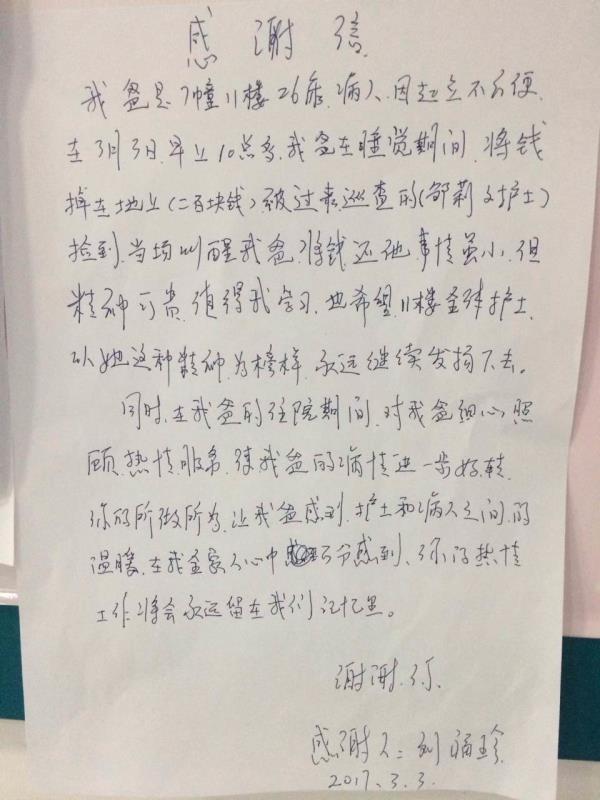 感谢信
我爸是7幢11楼26床病人、因起立不方便、
在3月3日早上10点多、我爸在睡觉期间、将钱
掉在地上(二百块钱)被过来巡查的(邹莉文护士)
捡到、当场叫醒我爸、将钱还他、事情虽小、但
精神可贵、值得我学习、也希望11楼全体护士、
以她这种精神为榜样、永远继续发扬下去。
同时、在我爸的住院期间、对我爸细心照
顾、热情服务、使我爸的病情进一步好转、
你的所做所为、让我爸感到、护士和病人之间的
温暖、在我全家人心中万分感到、你的热情
工作将会永远留在我们记忆里。
谢谢你、
感谢人:刘福珍
2017.3.3.